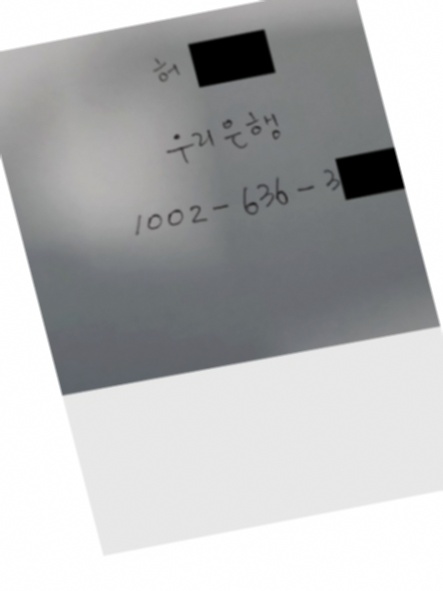 허
우리은행
1002-636-3